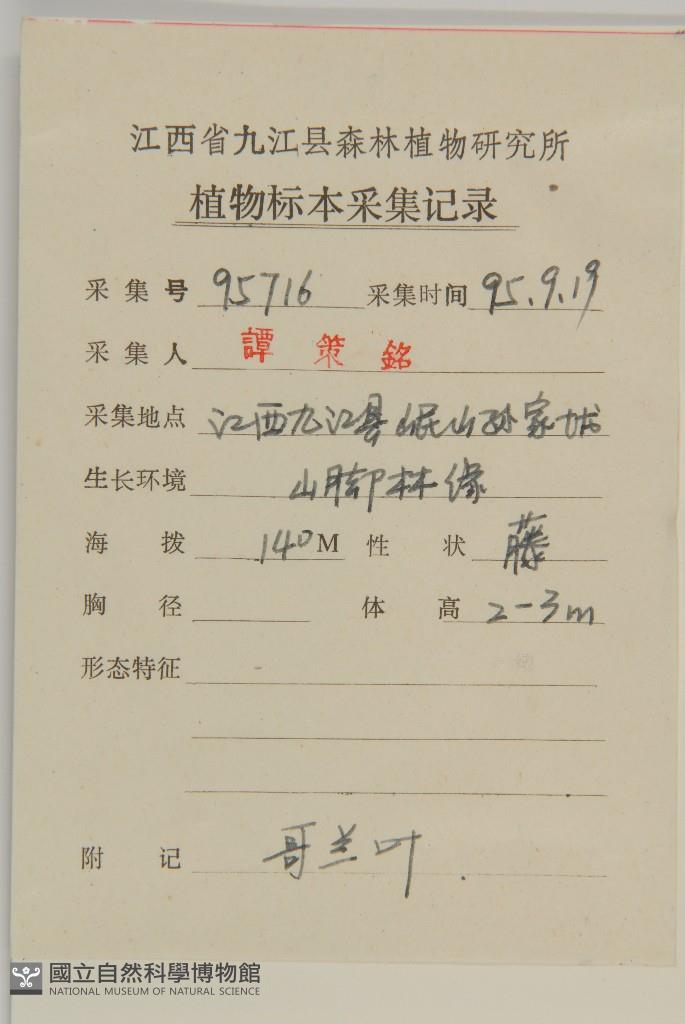 江西省九江县森林植物研究所
植物标本采集记录
采集号 95716 采集时间 95.9.19
采集人 譚策銘
采集地点 江西九江县岷山孙家城
生长环境 山脚林缘
海拨 140M 性状 藤
胸径 体高 2-3m
形态特征
附记 哥兰叶
國立自然科學博物館
NATIONAL MUSEUM OF NATURAL SCIENCE